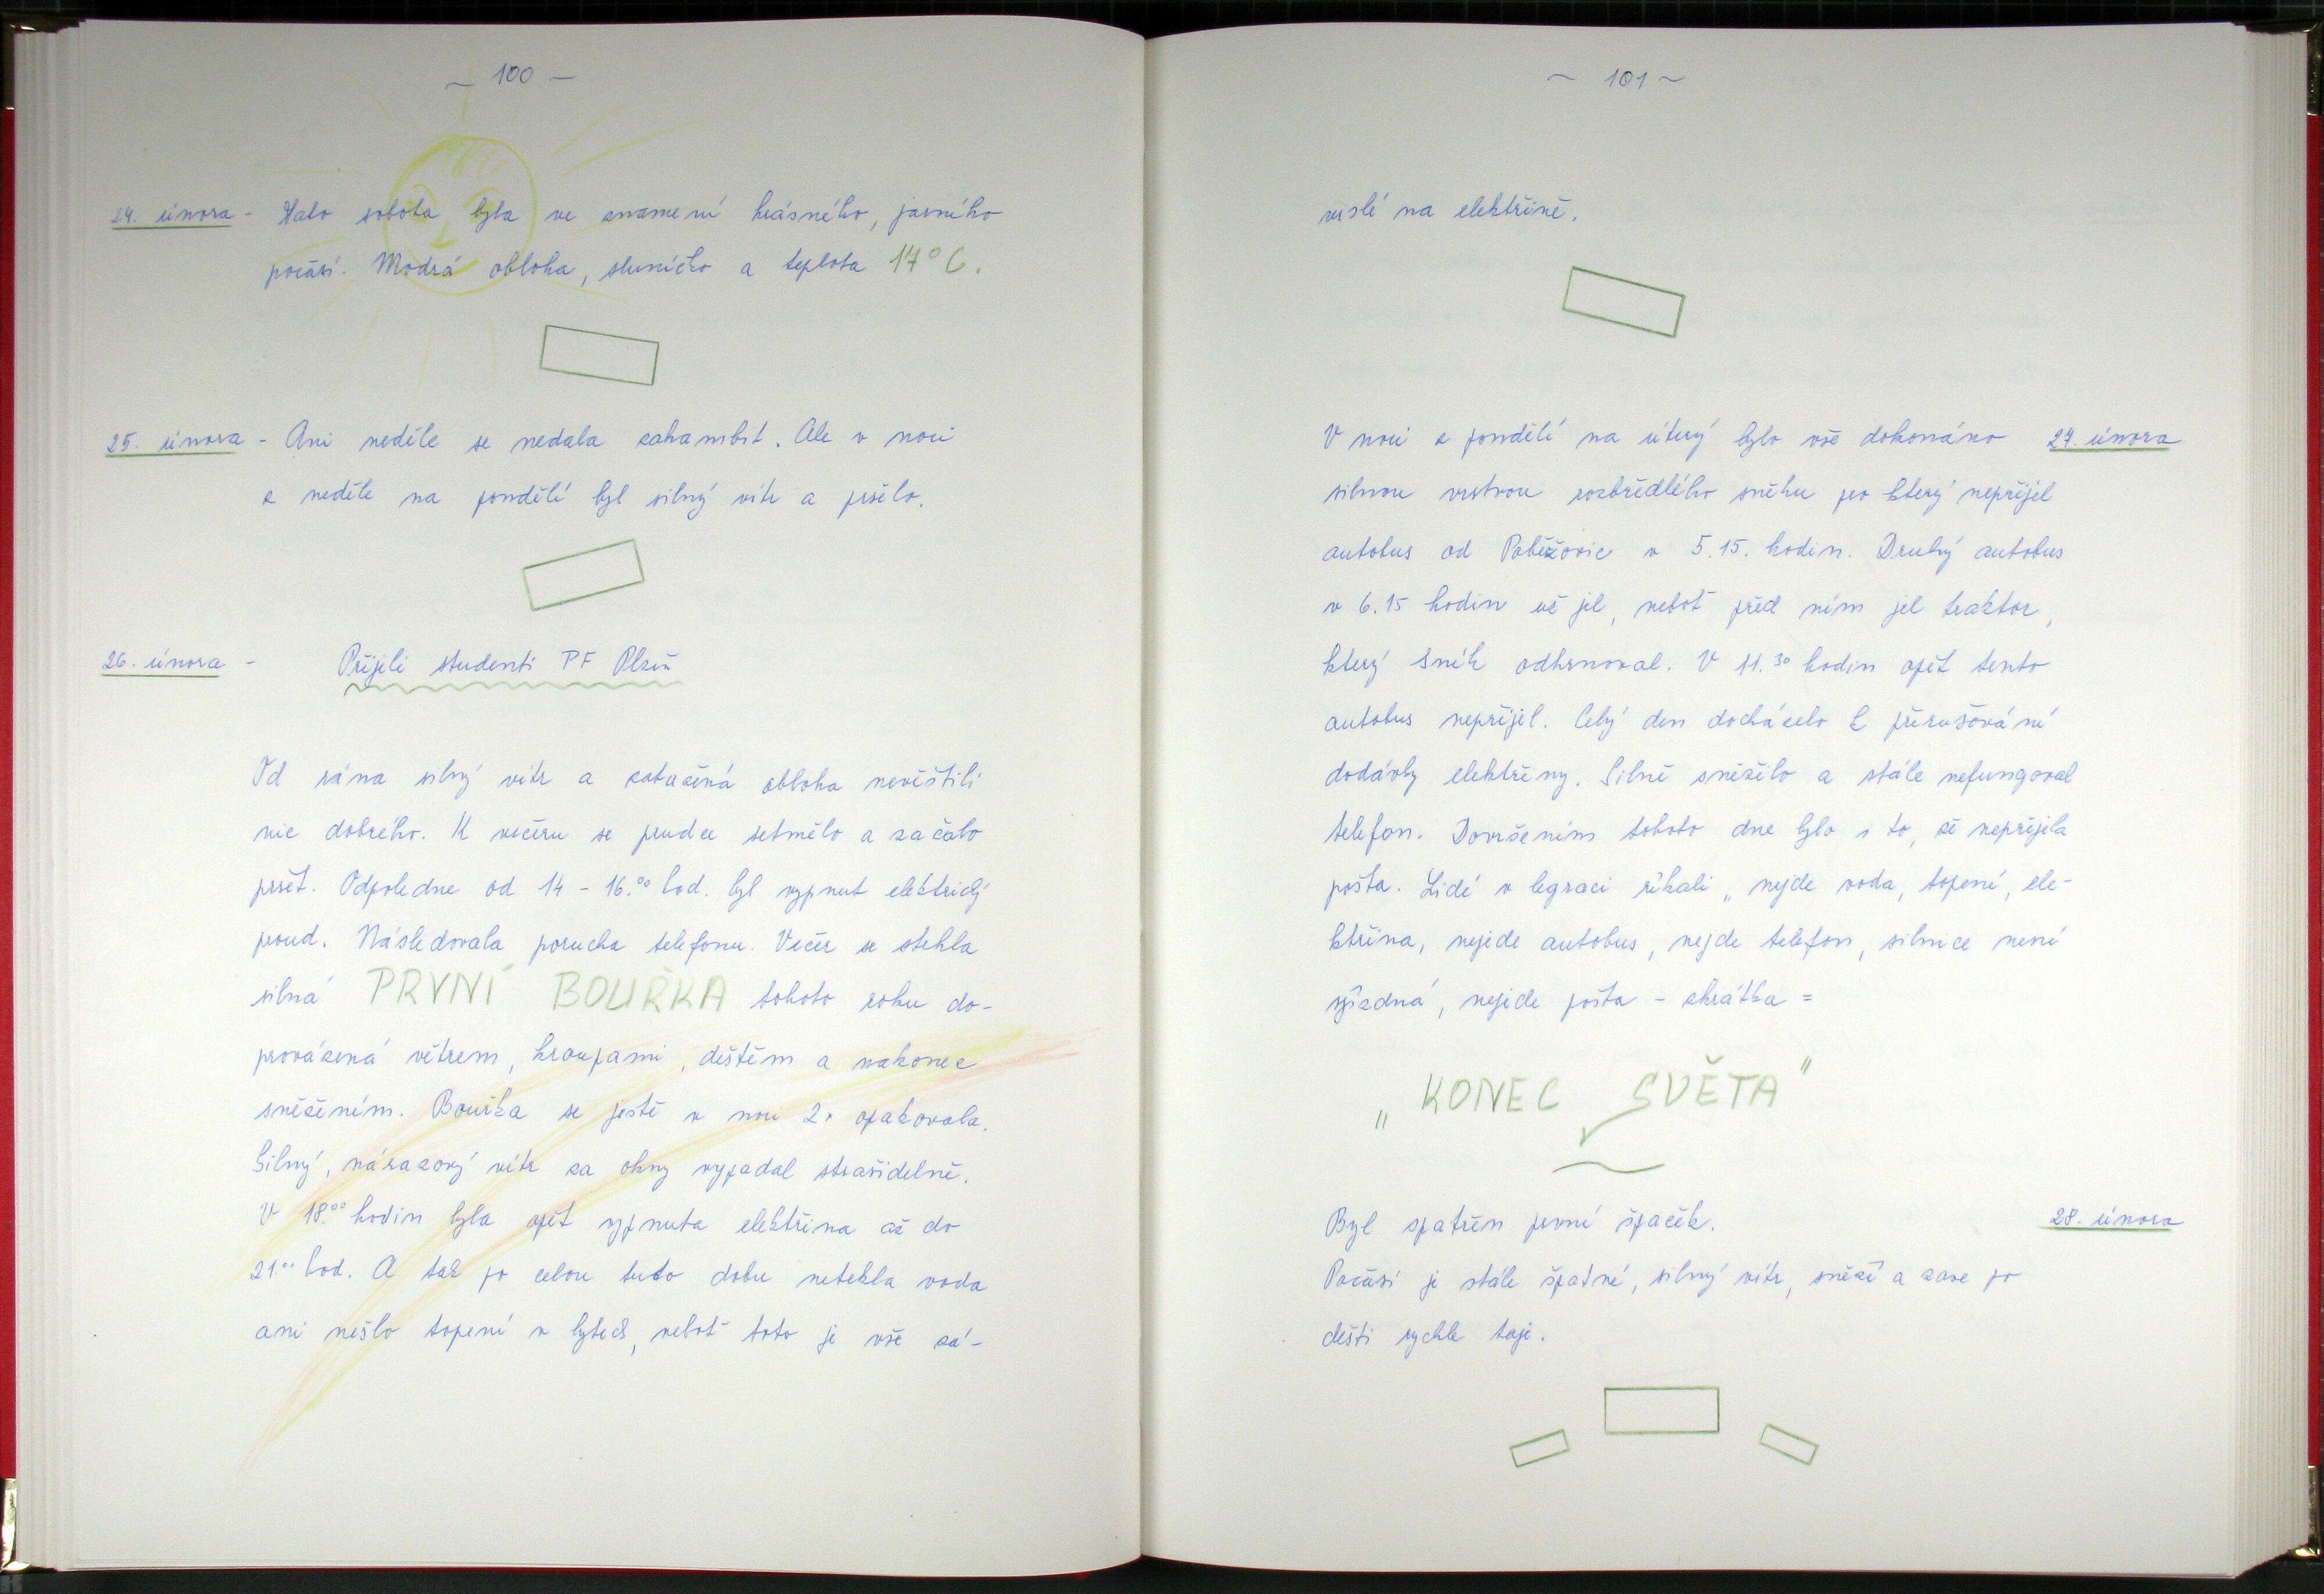 ~ 100 ~
24. února - Tato sobota byla ve znamení krásného, jarního
počasí. Modrá obloha, sluníčko a teplota 17°C.
25. února - Ani neděle se nedala zahambit. Ale v noci
z neděle na pondělí byl silný vítr a pršelo.
26. února - Přijeli studenti PF Plzeň
Od rána silný vítr a zatažená obloha nevěštili
nic dobrého. K večeru se prudce setmělo a začalo
pršet. Odpoledne od 14 - 16.00 hod. byl vypnut elektrický
proud. Následovala porucha telefonu. Večer se strhla
silná PRVNÍ BOUŘKA tohoto roku do-
provázená větrem, kroupami, deštěm a nakonec
sněžením. Bouřka se ještě v noci 2x opakovala.
Silný, nárazový vítr za okny vypadal strašidelně.
V 18.00 hodin byla opět vypnuta elektřina až do
21.00 hod. A tak po celou tuto dobu netekla voda
ani nešlo topení v bytech, neboť toto je vše zá-
~ 101 ~
vislé na elektřině.
V noci z pondělí na úterý bylo vše dokonáno 27. února
silnou vrstvou rozbředlého sněhu pro který nepřijel
autobus od Poběžovic v 5.15. hodin. Druhý autobus
v 6.15 hodin už jel, neboť před ním jel traktor,
který sníh odhrnoval. V 11.30 hodin opět tento
autobus nepřijel. Celý den docházelo k přerušování
dodávky elektřiny. Silně sněžilo a stále nefungoval
telefon. Dovršením tohoto dne bylo i to, že nepřijela
pošta. Lidé v legraci říkali „nejde voda, topení, ele-
ktřina, nejede autobus, nejde telefon, silnice není
sjízdná, nejede pošta - zkrátka =
„KONEC SVĚTA"
Byl spatřen první špaček. 28. února
Počasí je stále špatné, silný vítr, sněží a zase po
dešti rychle taje.